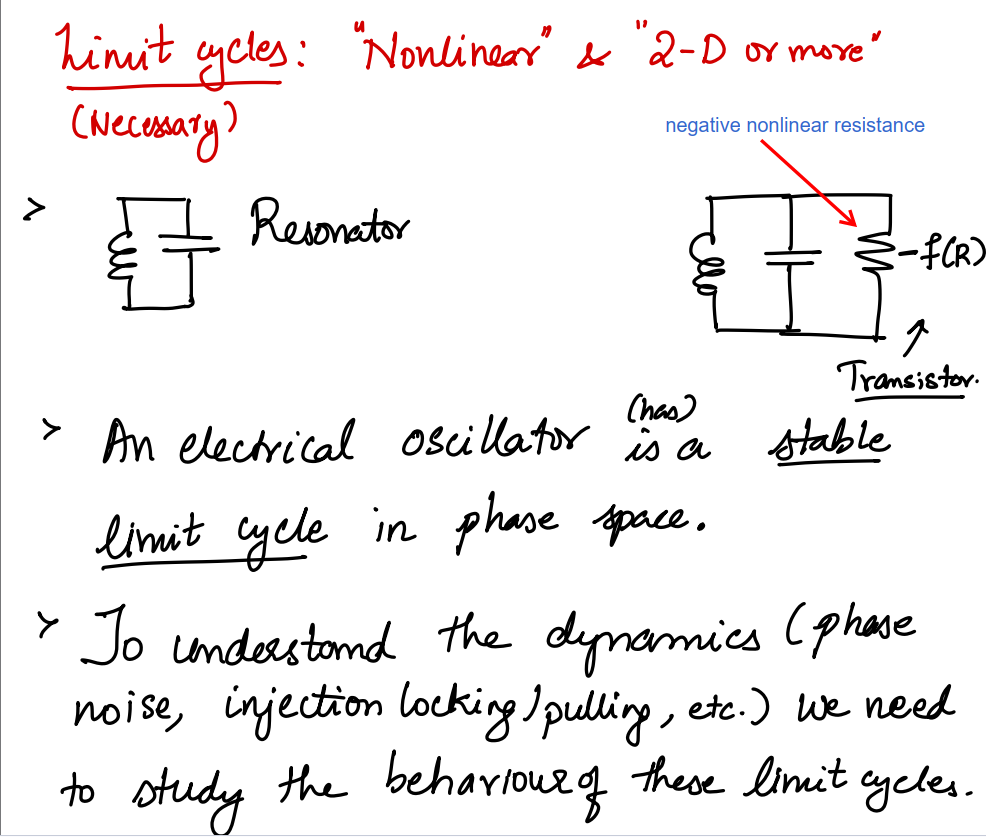 Limit cycles: "Nonlinear" & "2-D or more"
(Necessary)
negative nonlinear resistance
> Resonator
-f(R)
Transistor.
> An electrical oscillator (has) is a stable
limit cycle in phase space.
> To understand the dynamics (phase
noise, injection locking/pulling, etc.) we need
to study the behaviour of these limit cycles.